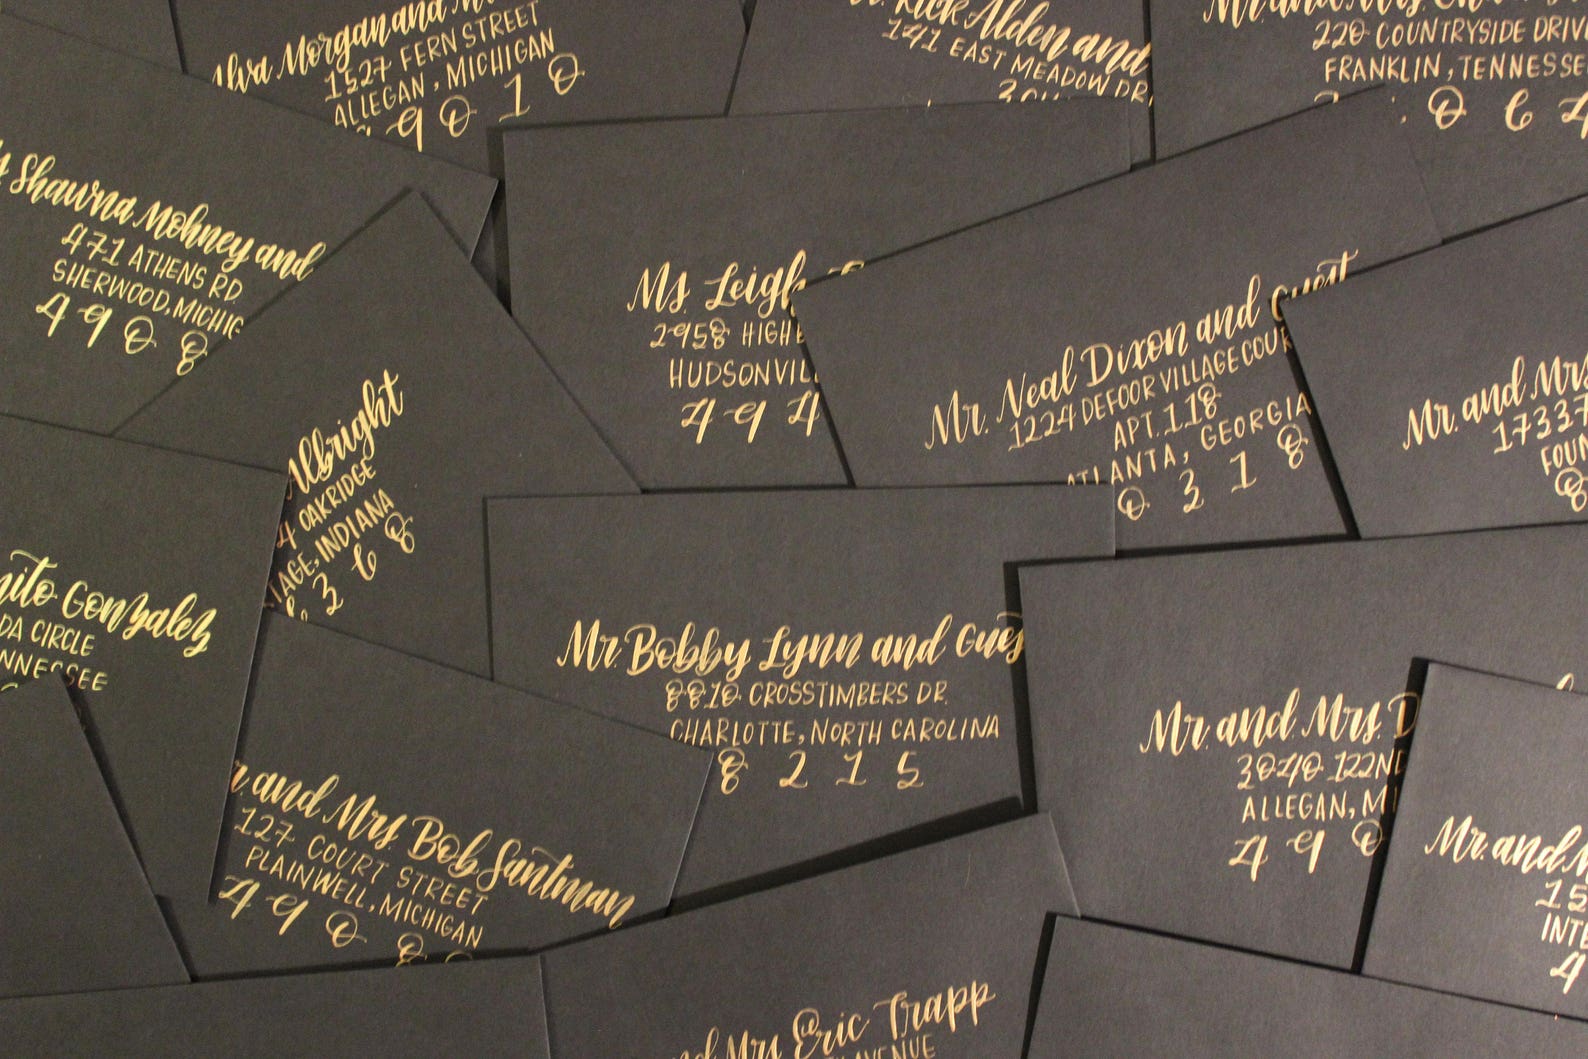 Alva Morgan and
1527 FERN STREET
ALLEGAN, MICHIGAN
9010
Rick Alden and
141 EAST MEADOW DR.
Mr. and Mrs.
220 COUNTRYSIDE DRIV
FRANKLIN, TENNESSE
064
Shawna Mohney and
471 ATHENS RD.
SHERWOOD, MICHIG
4908
Ms. Leigh
2958 HIGH
HUDSONVIL
494
Mr. Neal Dixon and Guest
1224 DEFOOR VILLAGE COUR
APT. 118
ATLANTA, GEORGIA
0318
Mr. and Mrs.
17337
FOUN
8
Albright
4 OAKRIDGE
TAGE, INDIANA
368
nito Gonzalez
DA CIRCLE
NNESSEE
Mr. Bobby Lynn and Gues
8810 CROSSTIMBERS DR.
CHARLOTTE, NORTH CAROLINA
8215
Mr. and Mrs. D
3040 122ND
ALLEGAN, MI
490
r. and Mrs. Bob Santman
127 COURT STREET
PLAINWELL, MICHIGAN
4908
Mr. and
15
INTE
4
nd Mrs. Eric Trapp
AVENUE